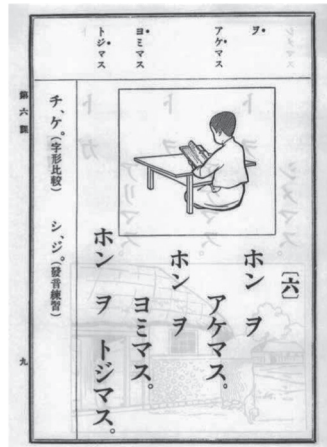 ヲ
アケマス
ヨミマス
トジマス
[六]
ホン ヲ
アケマス。
ホン ヲ
ヨミマス。
ホン ヲ トジマス。
チ、ケ。(字形比較)
シ、ジ。(發音練習)
第六課
九